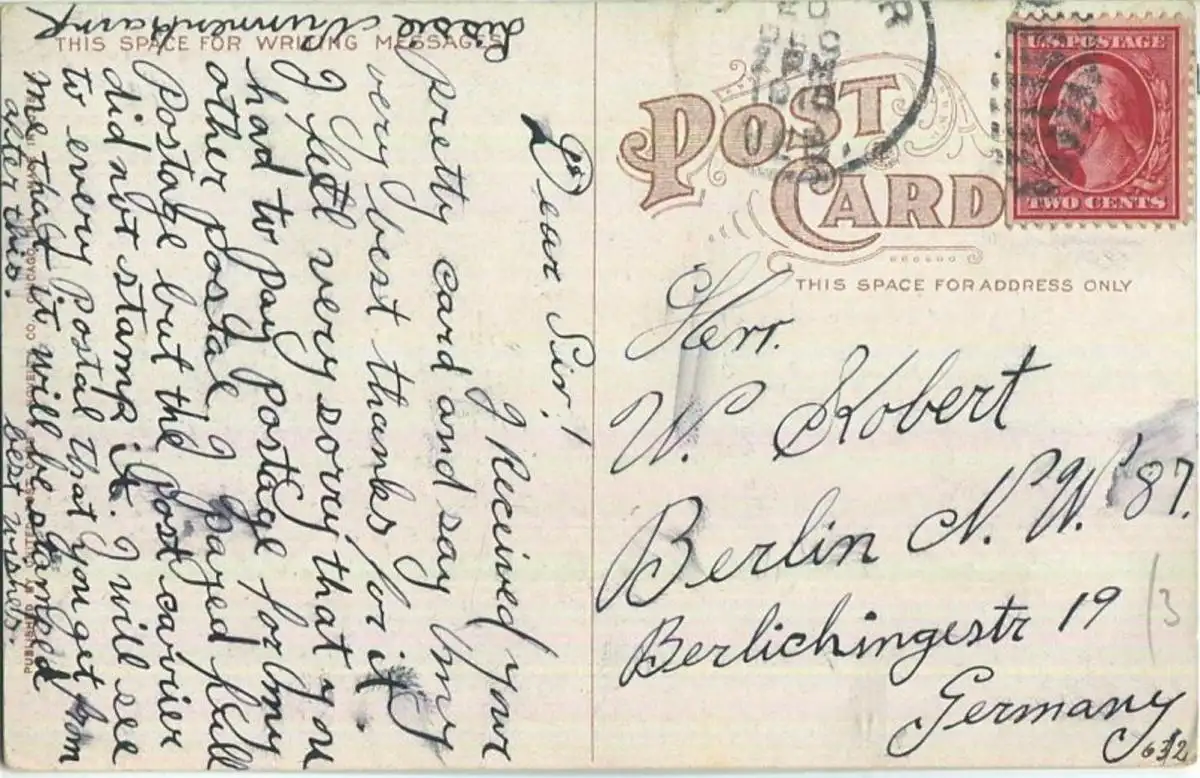 THIS SPACE FOR WRITING MESSAGES
Dear Sir!
I Received your
pretty card and say my
very best thanks for it.
I feel very sorry that you
had to pay postage for my
other postal I payed full
Postage but the Post carrier
did not stamp it. I will see
to every postal that you get from
me that it will be stamped
after this.
best wishes.
Lissie
POST
CARD
THIS SPACE FOR ADDRESS ONLY
U.S. POSTAGE
TWO CENTS
Herr.
W. Kobert
Berlin N. W. 87.
Berlichingestr 19
Germany
13